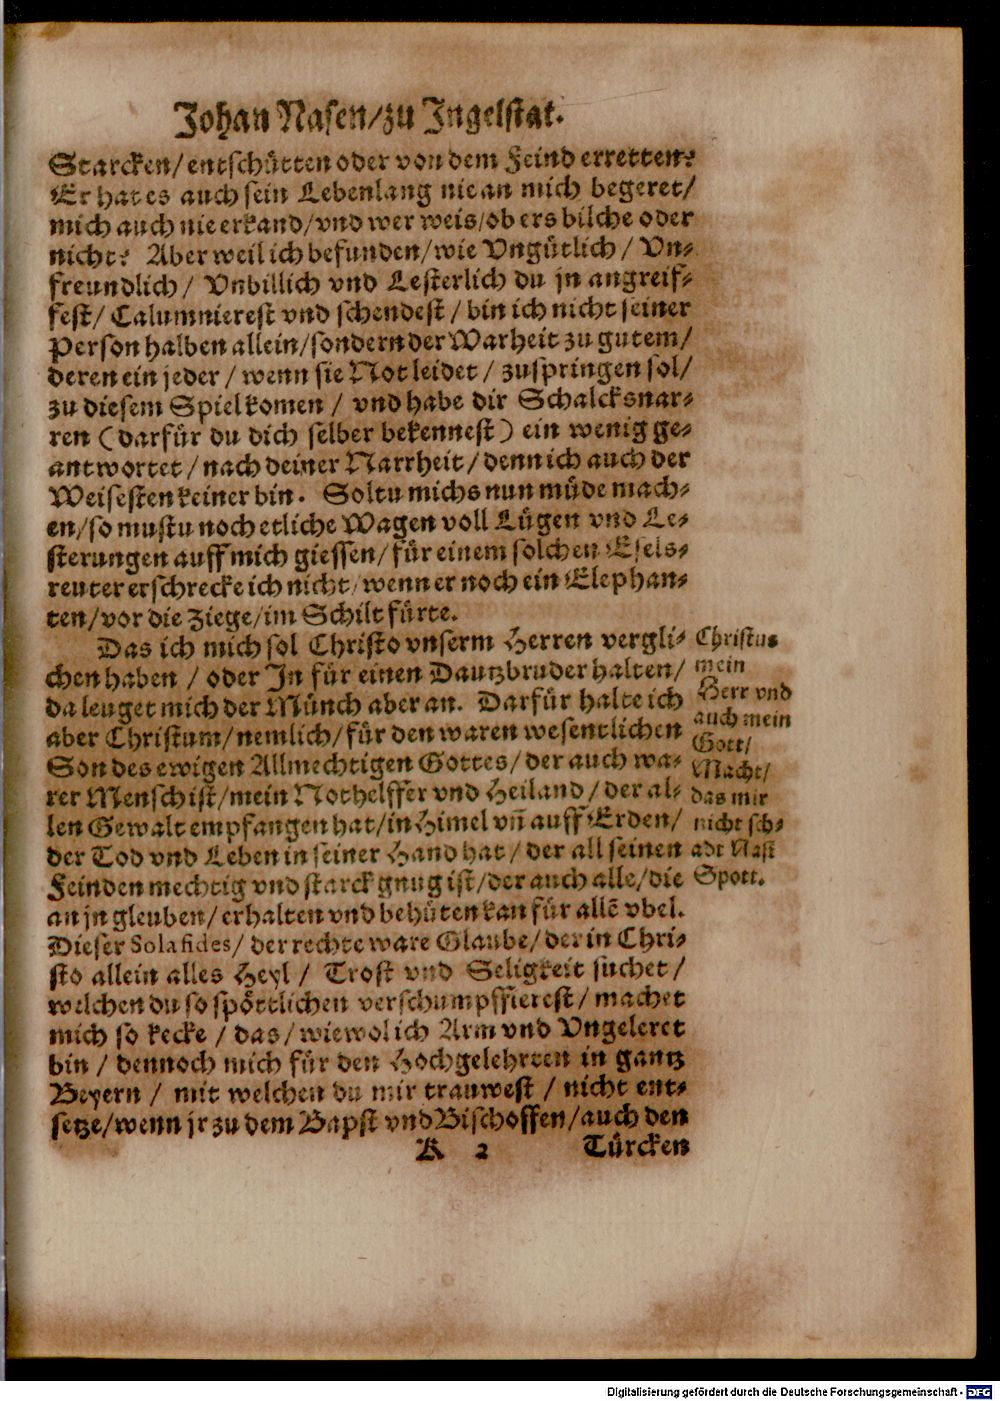 Johan Nasen/zu Ingelstat.
Starcken/entschütten oder von dem Feind erretten?
Er hat es auch sein Lebenlang nie an mich begeret/
mich auch nie erkand/vnd wer weis/ob ers bilche oder
nicht? Aber weil ich befunden/wie Vngütlich/ Vn-
freundlich/ Vnbillich vnd Lesterlich du jn angreif-
fest/ Calumnierest vnd schendest/ bin ich nicht seiner
Person halben allein/sondern der Warheit zu gutem/
deren ein jeder/ wenn sie Not leidet/ zuspringen sol/
zu diesem Spiel komen/ vnd habe dir Schalcksnar-
ren (darfür du dich selber bekennest) ein wenig ge-
antwortet/ nach deiner Narrheit/ denn ich auch der
Weisesten keiner bin. Soltu michs nun müde mach-
en/so mustu noch etliche Wagen voll Lügen vnd Le-
sterungen auff mich giessen/ für einem solchen Esels-
reuter erschrecke ich nicht/ wenn er noch ein Elephan-
ten/vor die Ziege/im Schilt fürte.
Das ich mich sol Christo vnserm Herren vergli-
chen haben/ oder In für einen Dautzbruder halten/
da leuget mich der Münch aber an. Darfür halte ich
aber Christum/nemlich/für den waren wesentlichen
Son des ewigen Allmechtigen Gottes/ der auch wa-
rer Mensch ist/mein Nothelffer vnd Heiland/ der al-
len Gewalt empfangen hat/in Himel vñ auff Erden/
der Tod vnd Leben in seiner Hand hat/ der all seinen
Feinden mechtig vnd starck gnug ist/der auch alle/die
an jn gleuben/ erhalten vnd behüten kan für allē vbel.
Dieser Sola fides/ der rechte ware Glaube/ der in Chri-
sto allein alles Heyl/ Trost vnd Seligkeit suchet/
welchen du so spöttlichen verschumpffierest/ machet
mich so kecke/ das/ wiewol ich Arm vnd Vngeleret
bin/ dennoch mich für den Hochgelehrten in gantz
Beyern/ mit welchen du mir trauwest/ nicht ent-
setze/wenn jr zu dem Bapst vnd Bischoffen/auch den
A 2 Türcken
Christus
mein
Herr vnd
auch mein
Gott/
Macht/
das mir
nicht sch-
adt Nasē
Spott.
Digitalisierung gefördert durch die Deutsche Forschungsgemeinschaft - DFG